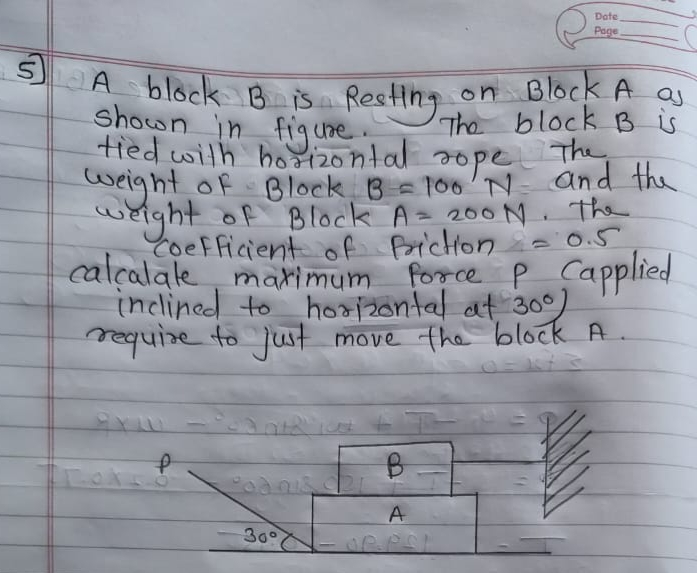 Date
Page
5] A block B is Resting on Block A as
shown in figure. The block B is
tied with horizontal rope The
weight of Block B = 100 N and the
weight of Block A = 200 N. The
coefficient of friction = 0.5
calcalate maximum force P (applied
inclined to horizontal at 30°)
require to just move the block A.
P
B
A
30°